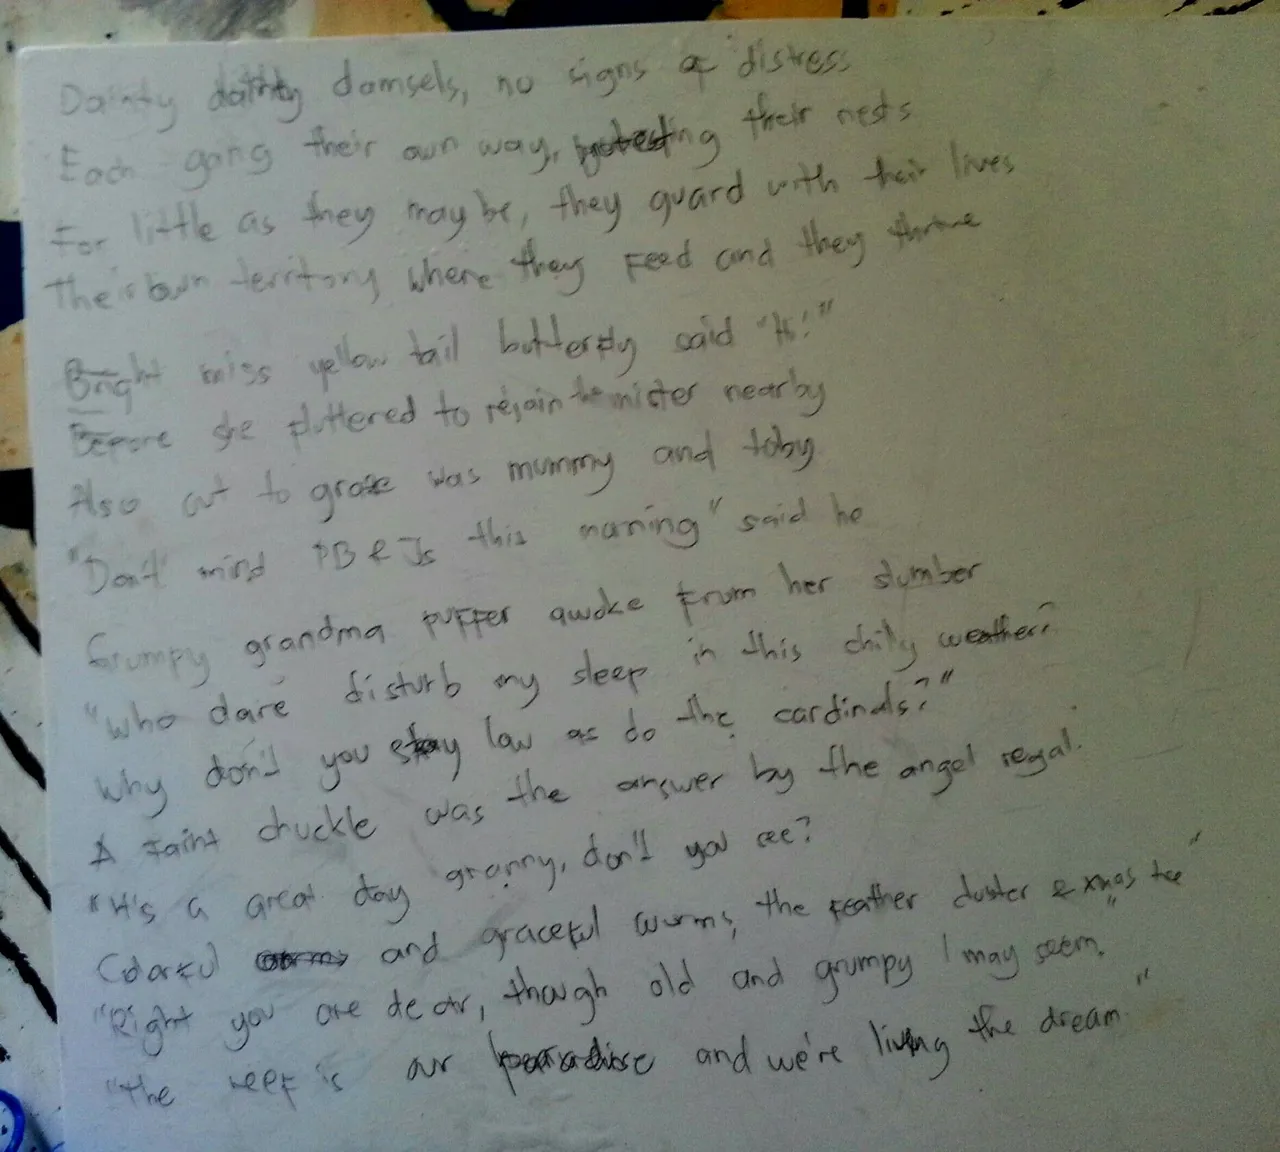 Dainty dainty damsels, no signs of distress
Each going their own way, protecting their nests
For little as they maybe, they guard with their lives
Their own territory where they feed and they thrive
Bright miss yellow tail butterfly said "Hi!"
Before she fluttered to rejoin the mister nearby
Also out to graze was mummy and toby
"Don't mind PB & Js this morning" said he
Grumpy grandma puffer awoke from her slumber
"Who dare disturb my sleep in this chilly weather?
Why don't you stay low as do the cardinals?"
A faint chuckle was the answer by the angel regal.
"It's a great day granny, don't you see?
Colorful and graceful worms, the feather duster & xmas tree"
"Right you are dear, though old and grumpy I may seem."
"The reef is our paradise and we're living the dream."